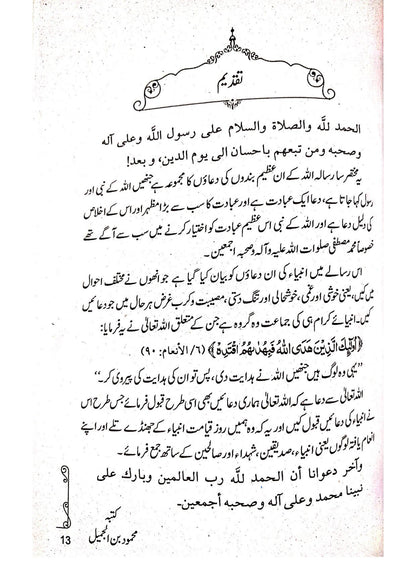 تقدیم
الحمد للّٰه والصلاة والسلام على رسول اللّٰه وعلى آله
وصحبه ومن تبعهم باحسان الى يوم الدين، و بعد!
یہ مختصر سا رسالہ اللہ کے ان عظیم بندوں کی دعاؤں کا مجموعہ ہے جنھیں اللہ کے نبی اور
رسول کہا جاتا ہے، دعا ایک عبادت ہے اور عبادت کا سب سے بڑا مظہر اور اس کے اخلاص
کی دلیل دعا ہے اور اللہ کے نبی اس عظیم عبادت کو اختیار کرنے میں سب سے آگے تھے
خصوصاً محمد مصطفیٰ صلوات اللہ علیہ وآلہ وصحبہ اجمعین۔
اس رسالے میں انبیاء کی ان دعاؤں کو بیان کیا گیا ہے جو انھوں نے مختلف احوال
میں کیں، یعنی خوشی اور غمی، خوشحالی اور تنگ دستی، مصیبت و کرب غرض ہر حال میں جو دعائیں
کیں۔ انبیائے کرام ہی کی جماعت وہ گروہ ہے جن کے متعلق اللہ تعالیٰ نے یہ فرمایا:
﴿اُولٰٓئِكَ الَّذِيْنَ هَدَى اللّٰهُ فَبِهُدٰىهُمُ اقْتَدِهْ﴾ (٦/الأنعام: ٩٠)
”یہی وہ لوگ ہیں جنھیں اللہ نے ہدایت دی، پس تو ان کی ہدایت کی پیروی کر۔“
اللہ تعالیٰ سے دعا ہے کہ اللہ تعالیٰ ہماری دعائیں بھی اسی طرح قبول فرمائے جس طرح اس
نے انبیاء کی دعائیں قبول کیں اور یہ کہ وہ ہمیں روز قیامت انبیاء کے جھنڈے تلے اور اپنے
انعام یافتہ لوگوں یعنی انبیاء، صدیقین، شہداء اور صالحین کے ساتھ جمع فرمائے۔
وآخر دعوانا أن الحمد للّٰه رب العالمين وبارك على
نبينا محمد وعلى آله وصحبه أجمعين۔
کتبہ
محمود بن الجمیل
13